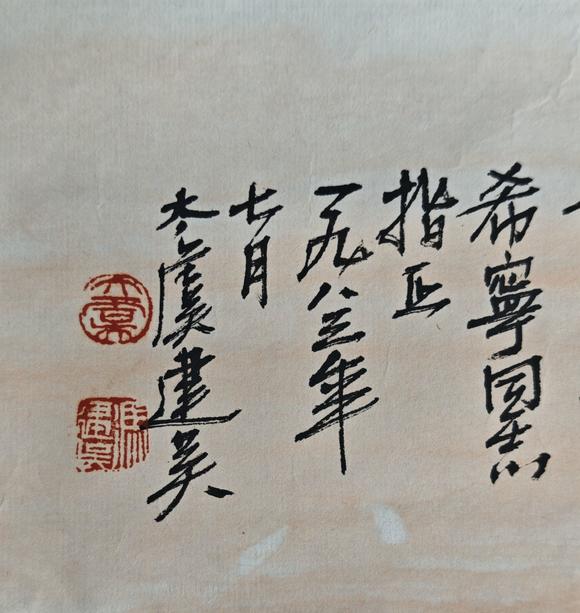 希寧同志
指正
一九八三年
七月
虞建吴